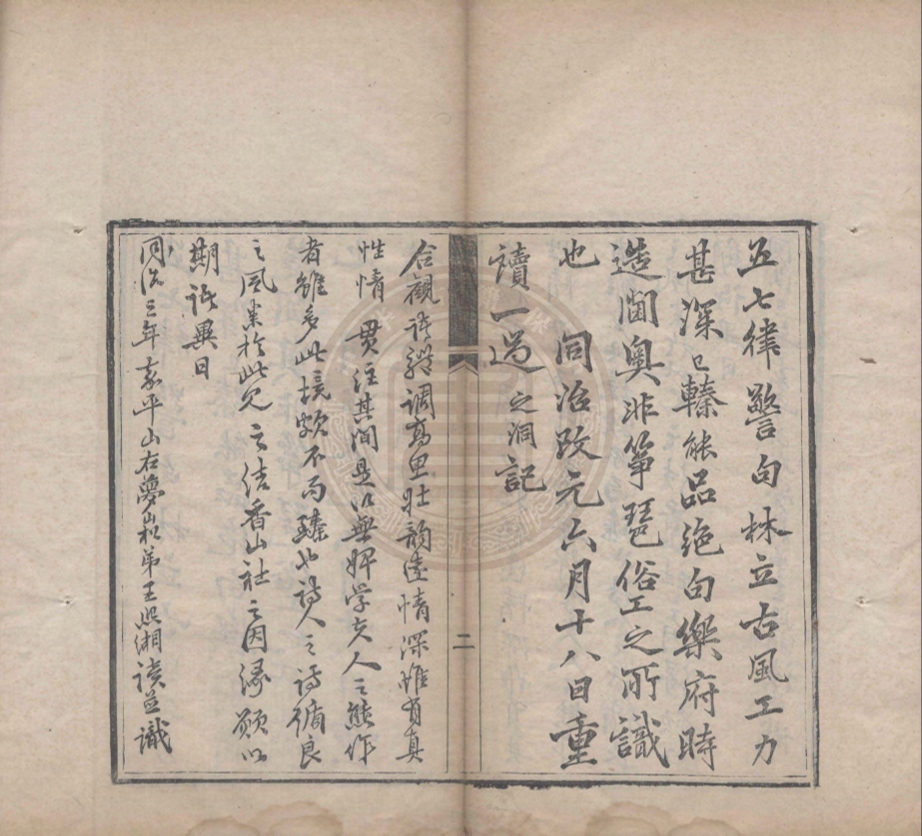 五七律警句林立古風工力
甚深已臻能品絕句樂府時
造閫奧非箏琶俗工之所識
也 同治改元六月十八日重
讀一過之洞記
二
合觀諸調高思壯韵遠情深惟有真
性情貫注其間是以無婢學夫人之態作
者雖多此境頗不易臻也詩人之詩循良
之風業於此見之結香山社之因緣願以
期諸異日
同治三年嘉平山右夢弟王照湘讀並識